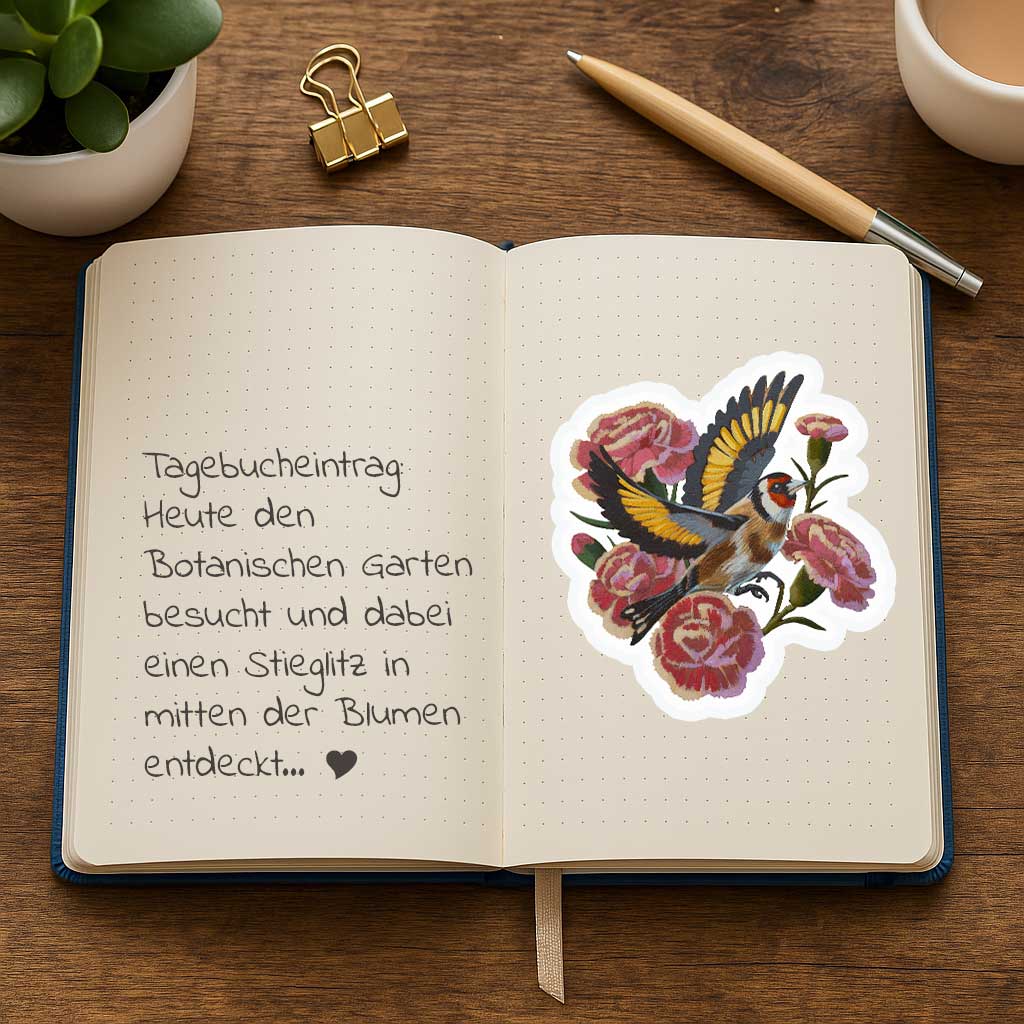 Tagebucheintrag:
Heute den
Botanischen Garten
besucht und dabei
einen Stieglitz in
mitten der Blumen
entdeckt... ♥